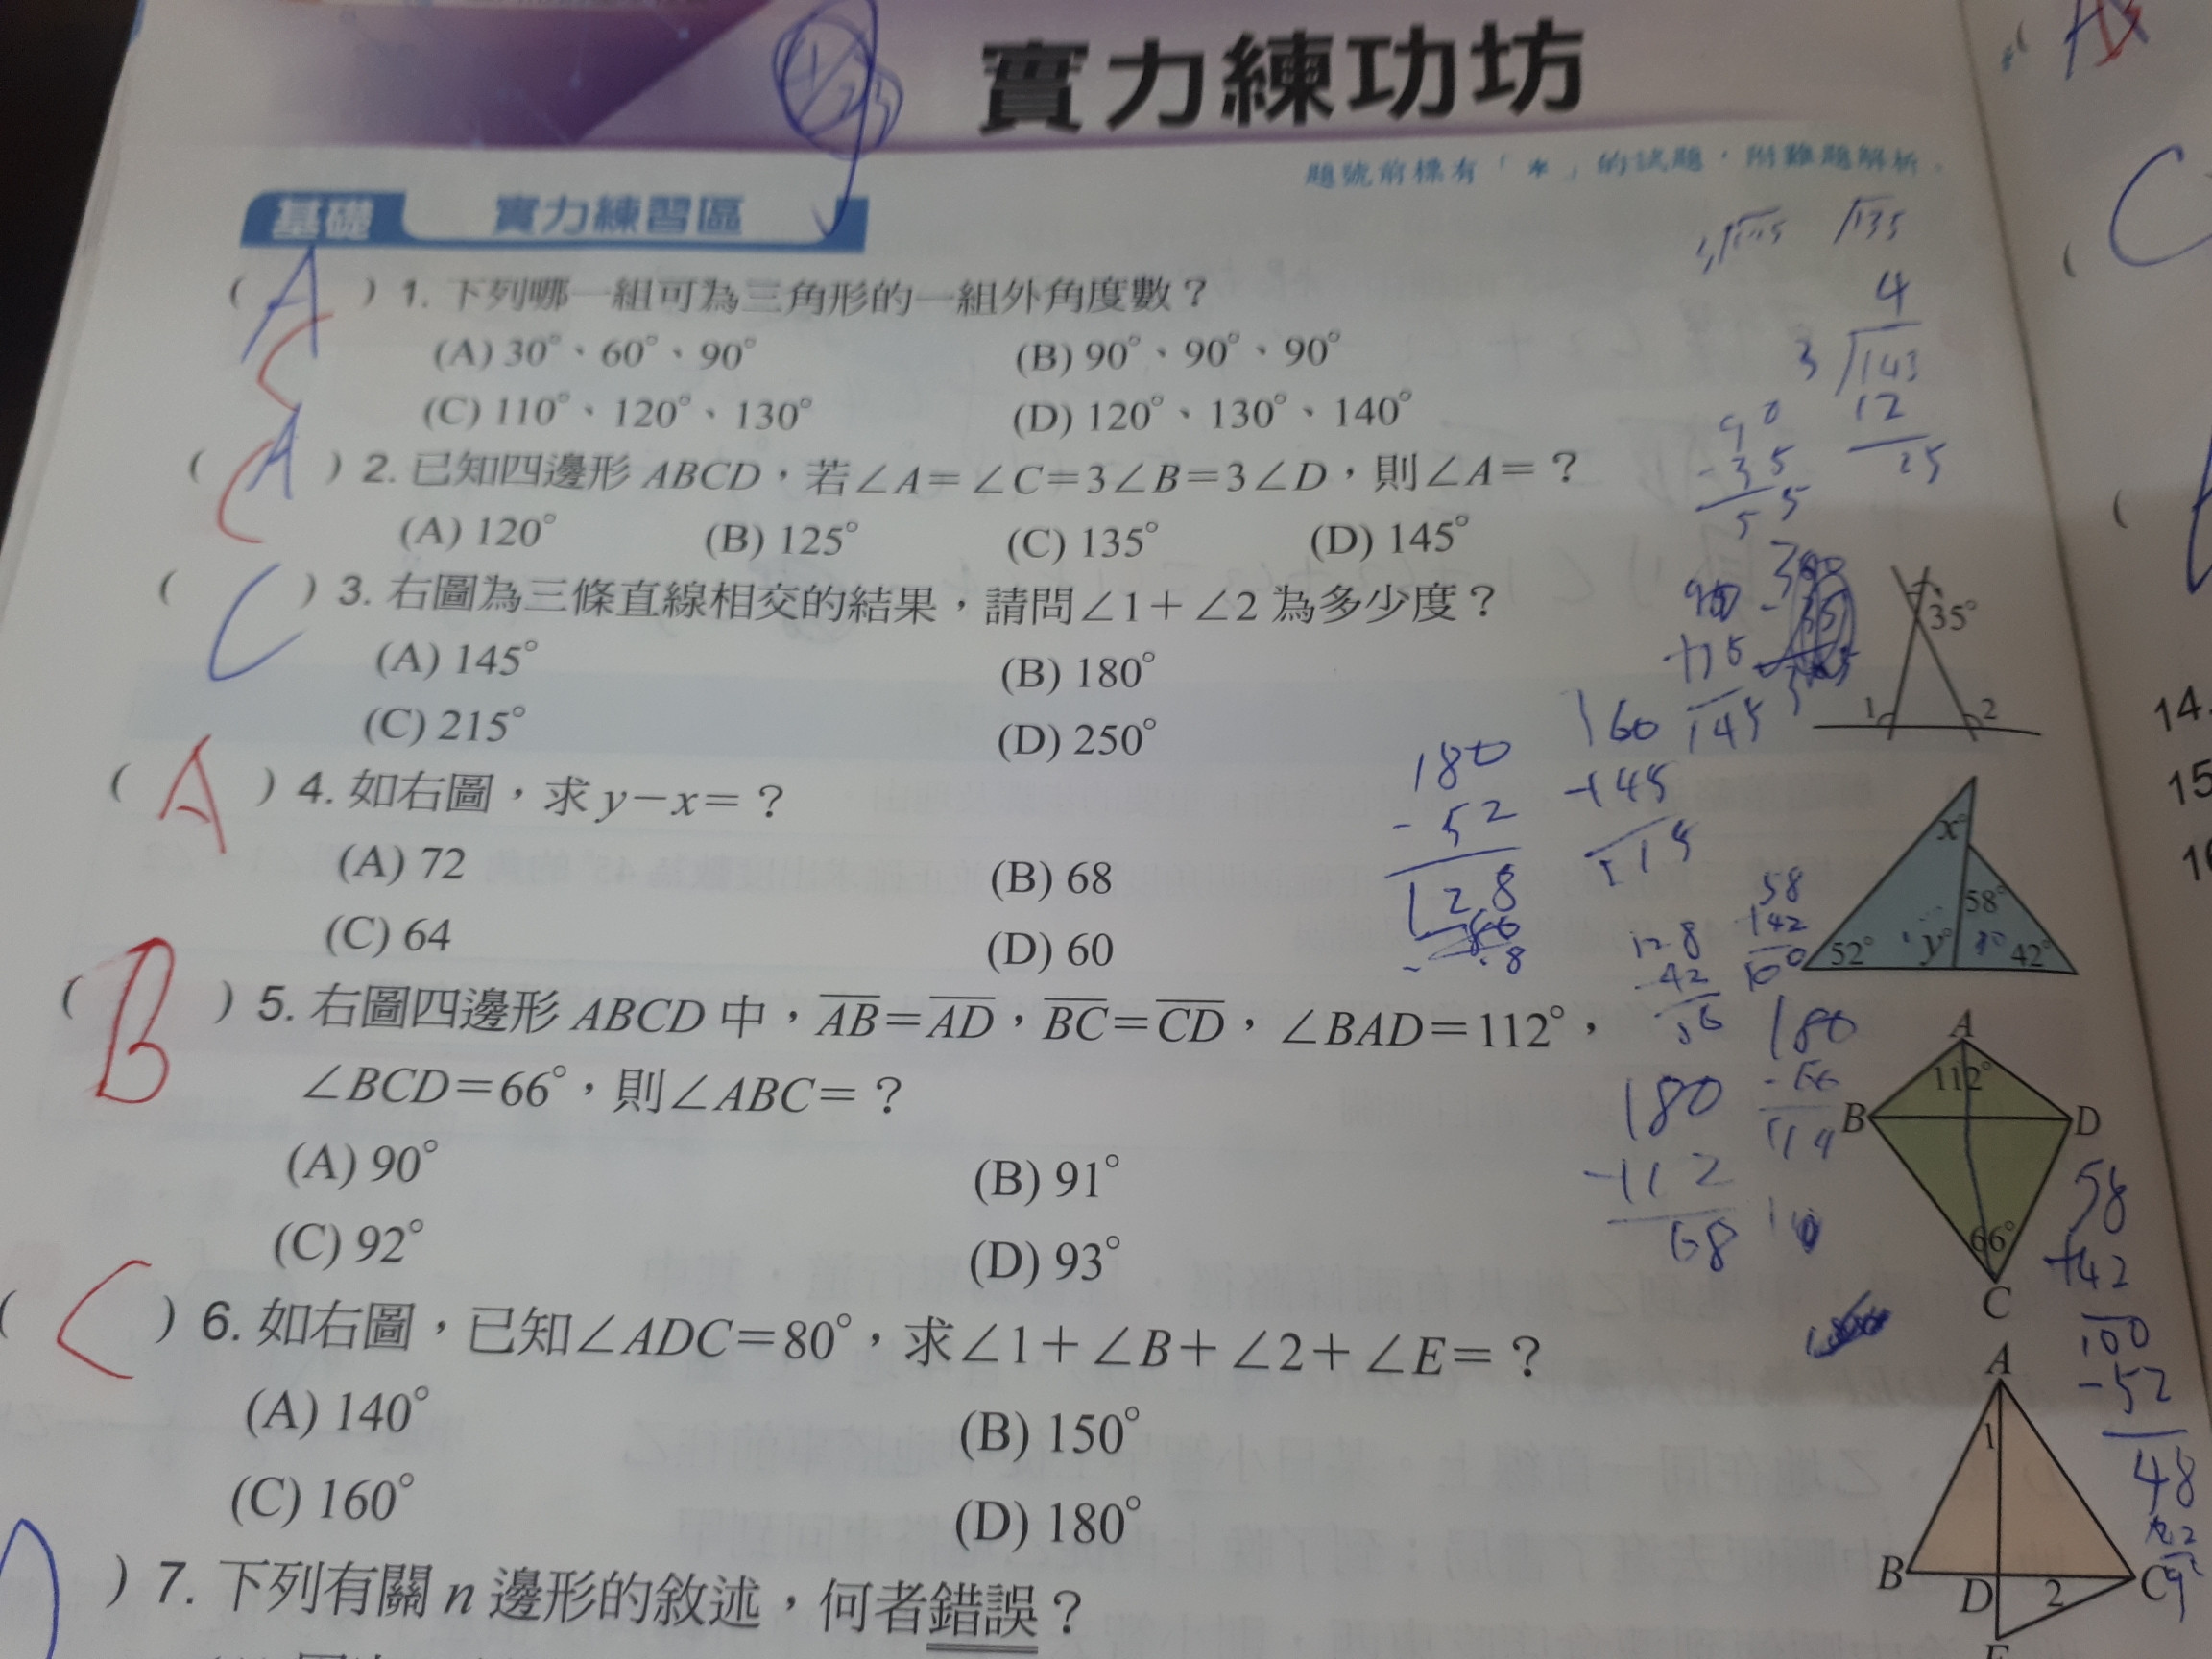 實力練功坊
題號前標有「*」的試題，附難題解析。
基礎 實力練習區
( A ) 1. 下列哪一組可為三角形的一組外角度數？
C
(A) 30°、60°、90° (B) 90°、90°、90°
(C) 110°、120°、130° (D) 120°、130°、140°
( A ) 2. 已知四邊形 ABCD，若∠A=∠C=3∠B=3∠D，則∠A=？
C
(A) 120° (B) 125° (C) 135° (D) 145°
( C ) 3. 右圖為三條直線相交的結果，請問∠1+∠2 為多少度？
(A) 145° (B) 180°
(C) 215° (D) 250°
35°
1 2
( A ) 4. 如右圖，求 y-x=？
(A) 72 (B) 68
(C) 64 (D) 60
x°
58°
52° y° 42°
( B ) 5. 右圖四邊形 ABCD 中，AB=AD，BC=CD，∠BAD=112°，
∠BCD=66°，則∠ABC=？
(A) 90° (B) 91°
(C) 92° (D) 93°
A
112°
B D
66°
C
( C ) 6. 如右圖，已知∠ADC=80°，求∠1+∠B+∠2+∠E=？
(A) 140° (B) 150°
(C) 160° (D) 180°
A
1
B D 2 C
E
) 7. 下列有關 n 邊形的敘述，何者錯誤？
135
4
3 143
12
90
-35
55
180
-52
128
160
+45
145
58
+42
100
128
-42
180
-112
68
180
58
+42
100
-52
48
C
14.
15